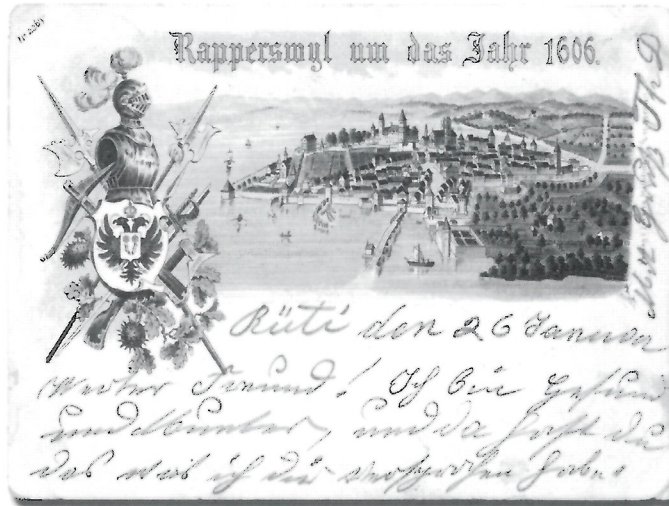 Rappersmyl um das Jahr 1606.
Rüti den 26 Januar
Werter Freund! Ich bin gesund
und Munter, und da hast du
das was ich dir versprochen habe.